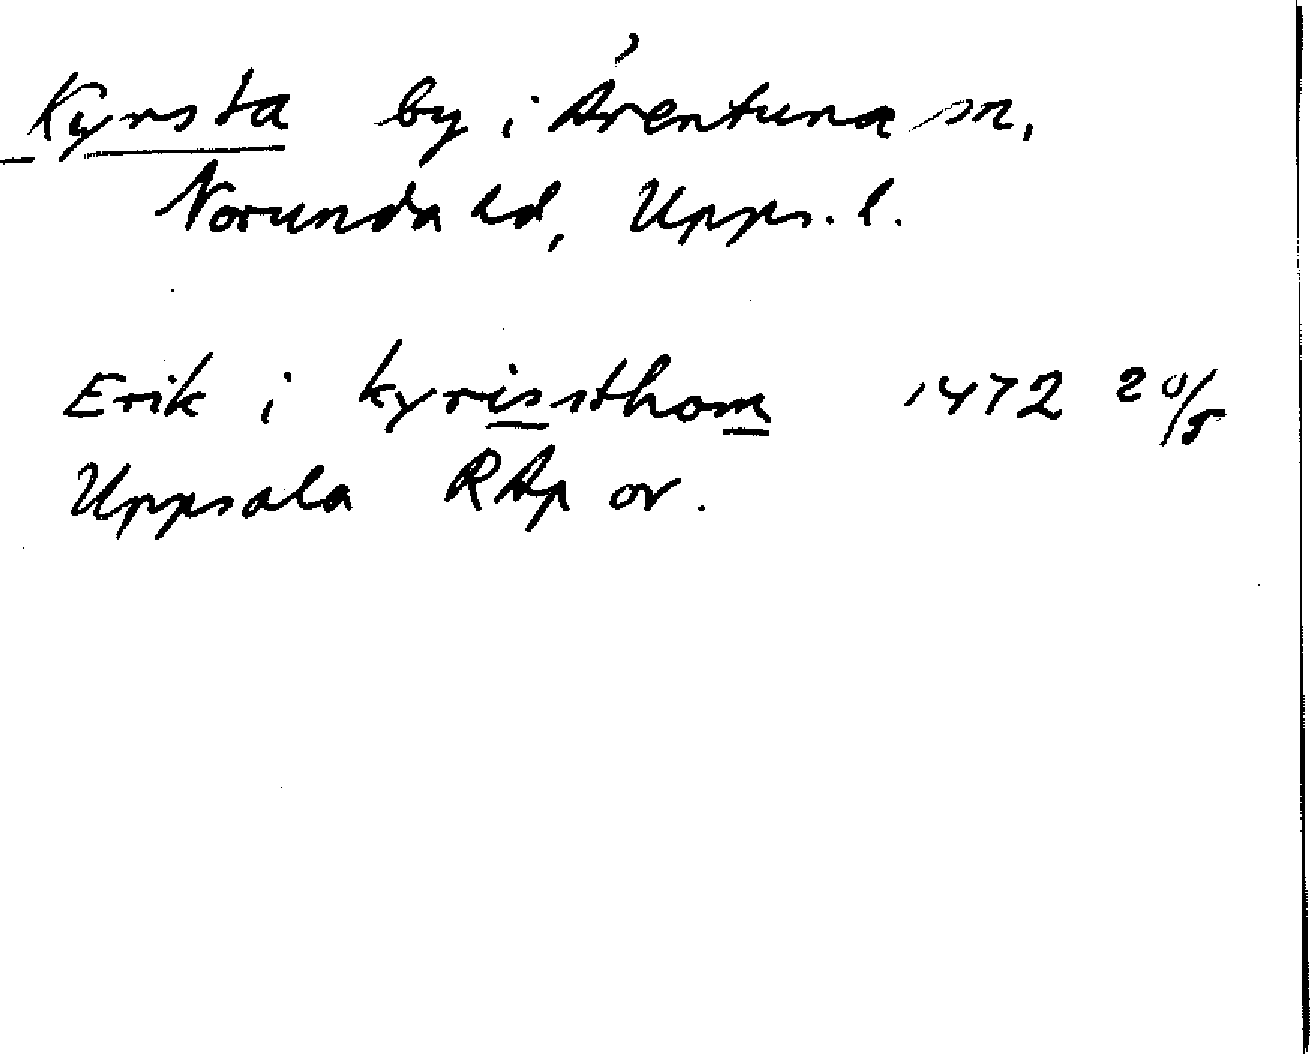 Kyrsta by i Ärentuna sn,
Norunda hd, Upps. l.
Erik i kyrissthom 1472 20/5
Uppsala RAp or.